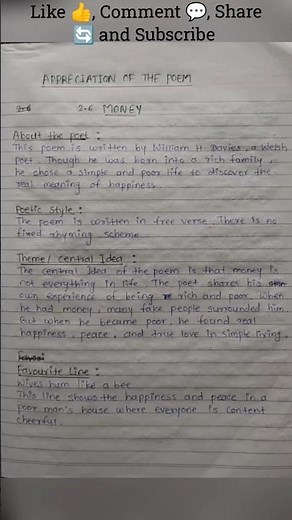 Like 👍, Comment 💬, Share
🔄 and Subscribe
APPRECIATION OF THE POEM
2.6 2.6 MONEY
About the poet :
This poem is written by William H. Davies, a Welsh
poet. Though he was born into a rich family,
he chose a simple and poor life to discover the
real meaning of happiness.
Poetic Style :
The poem is written in free verse. There is no
fixed rhyming scheme
Theme / Central Idea :
The central idea of the poem is that money is
not everything in life. The poet shares his
own experience of being rich and poor. When
he had money, many fake people surrounded him.
But when he became poor, he found real
happiness, peace, and true love in simple living.
Favourite Line :
Wives hum like a bee
This line shows the happiness and peace in a
poor man's house where everyone is content
cheerful.